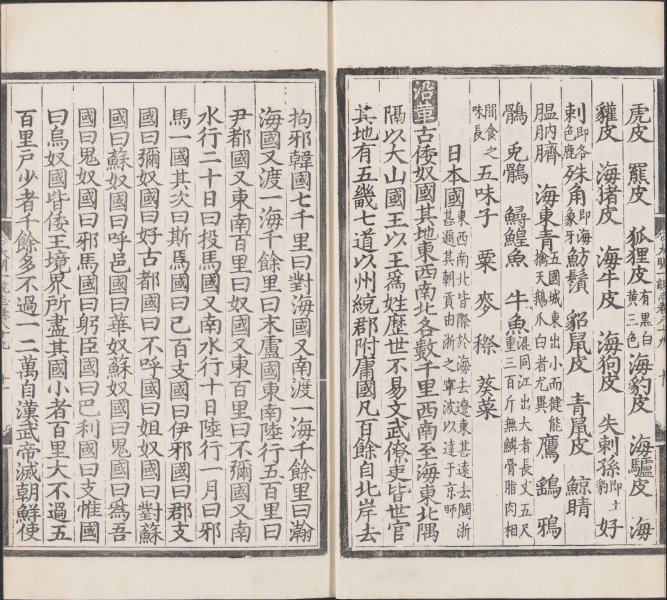 虎皮 羆皮 狐狸皮有黑白黃三色海豹皮 海驢皮 海
獾皮 海猪皮 海牛皮 海狗皮 失剌孫即土豹 好
剌即各色鹿殊角即海象牙魴鬚 貂鼠皮 青鼠皮 鯨睛
膃肭臍 海東青五國城東出小而健能擒天鵝爪白者尤異鷹 鷂 鴉
鶻 兎鶻 鱘鰉魚 牛魚混同江出大者長丈五尺重三百斤無鱗骨脂肉相
間食之味長五味子 粟 麥 穄 葵菜
日本國東西南北皆際於海去遼東甚遠去閩浙甚邇其朝貢由浙之寧波以達于京師
沿革古倭奴國其地東西南北各數千里西南至海東北隅
隔以大山國王以王爲姓歷世不易文武僚吏皆世官
其地有五畿七道以州統郡附庸國凡百餘自北岸去
拘邪韓國七千里曰對海國又南渡一海千餘里曰瀚
海國又渡一海千餘里曰末盧國東南陸行五百里曰
尹都國又東南百里曰奴國又東百里曰不彌國又南
水行二十日曰投馬國又南水行十日陸行一月曰邪
馬一國其次曰斯馬國曰己百支國曰伊邪國曰郡支
國曰彌奴國曰好古都國曰不呼國曰姐奴國曰對蘇
國曰蘇奴國曰呼邑國曰華奴蘇奴國曰鬼國曰爲吾
國曰鬼奴國曰邪馬國曰躬臣國曰巴利國曰支惟國
曰烏奴國皆倭王境界所盡其國小者百里大不過五
百里戶少者千餘多不過一二萬自漢武帝滅朝鮮使